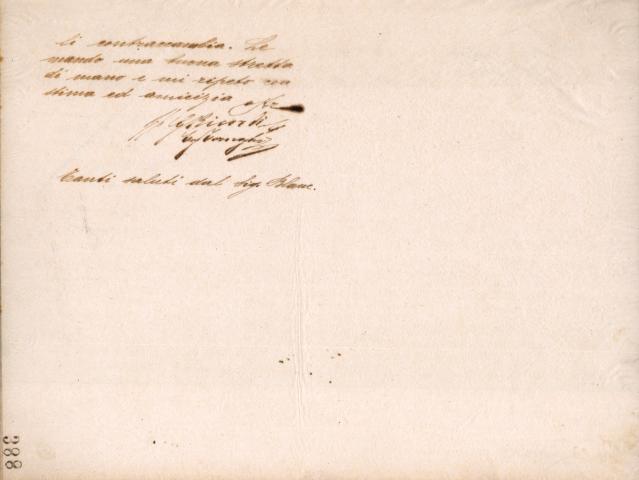 li contraccambia. Le
mando una buona stretta
di mano e mi ripeto con
stima ed amicizia
p. G Ricordi
Tanti saluti dal Sig. Blanc.
388